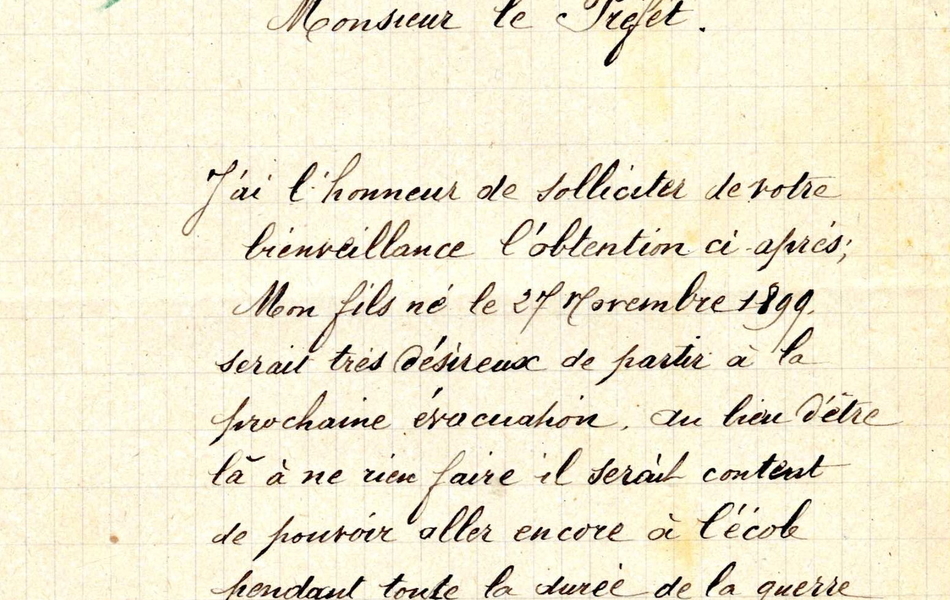 Monsieur le Préfet.
J'ai l'honneur de solliciter de votre
bienveillance l'obtention ci-après;
Mon fils né le 27 Novembre 1899.
serait très désireux de partir à la
prochaine évacuation, au lieu d'être
là à ne rien faire il serait content
de pouvoir aller encore à l'école
pendant toute la durée de la guerre